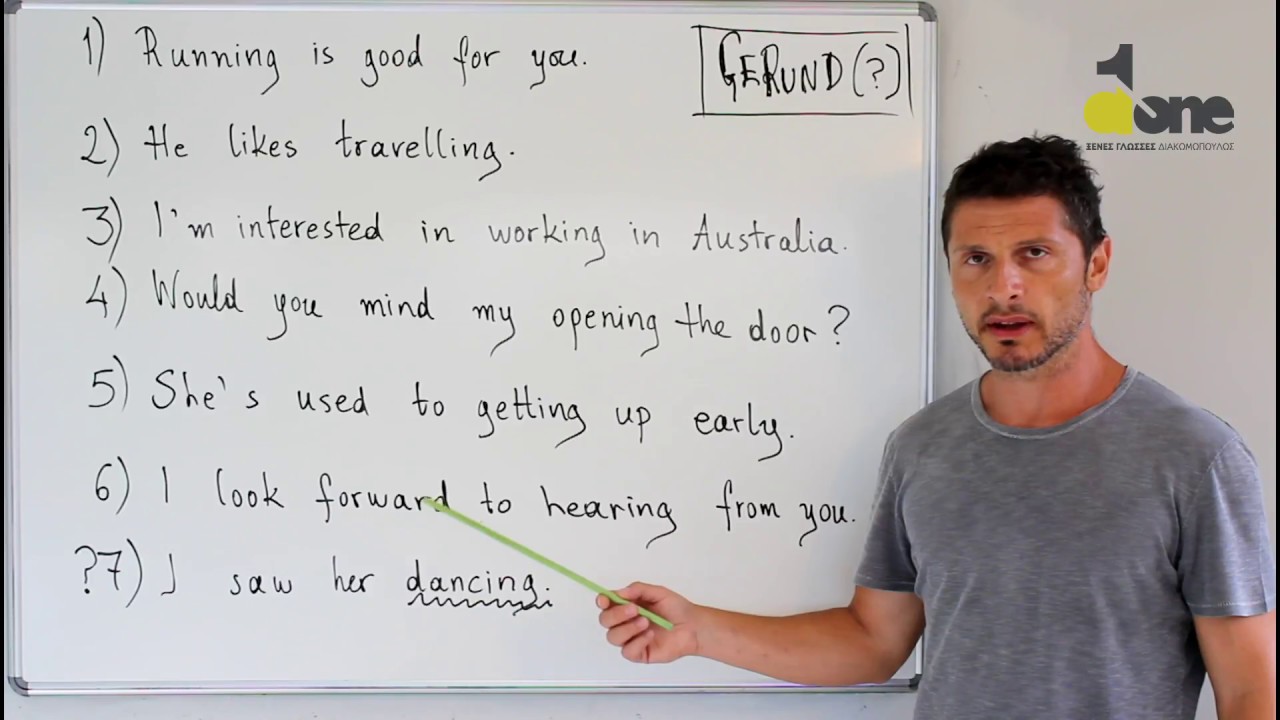 1) Running is good for you.
GERUND (?)
2) He likes travelling.
3) I'm interested in working in Australia.
4) Would you mind my opening the door?
5) She's used to getting up early.
6) I look forward to hearing from you.
?7) I saw her dancing.
1
done
ΞΕΝΕΣ ΓΛΩΣΣΕΣ ΔΙΑΚΟΜΟΠΟΥΛΟΣ